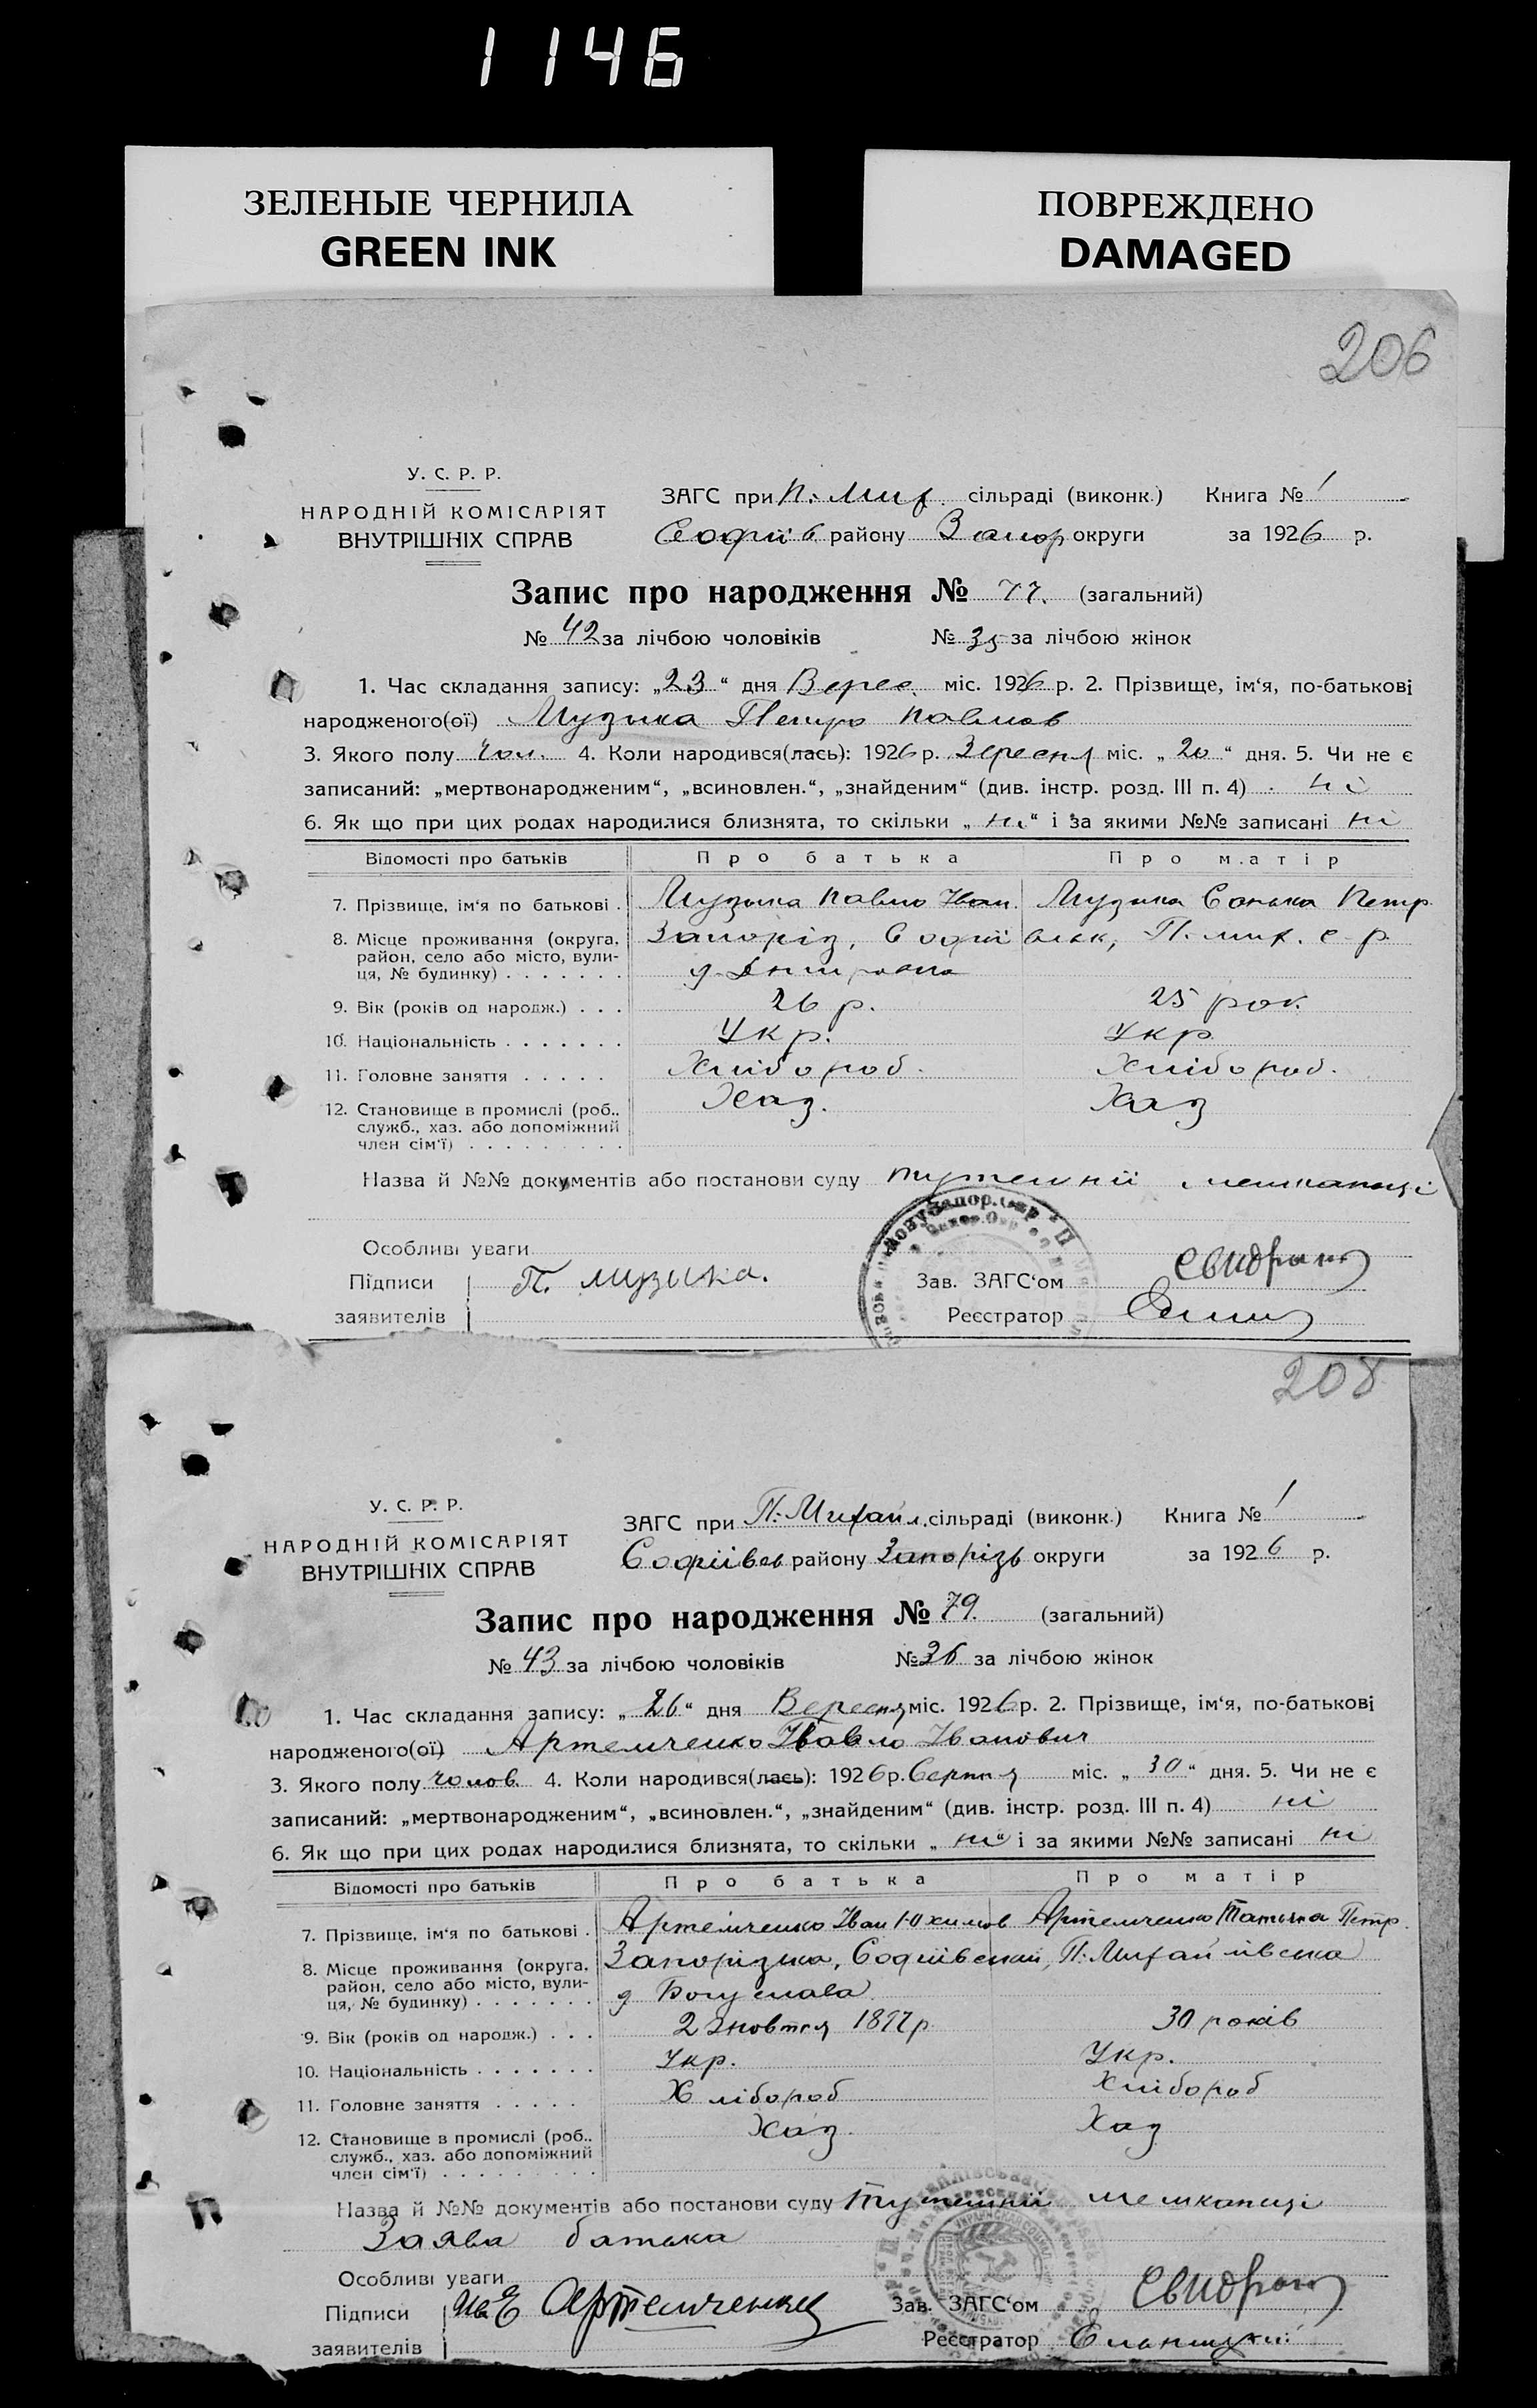 1146
ЗЕЛЕНЫЕ ЧЕРНИЛА
GREEN INK
ПОВРЕЖДЕНО
DAMAGED
206
У. С. Р. Р.
НАРОДНІЙ КОМІСАРІЯТ
ВНУТРІШНІХ СПРАВ
ЗАГС при П. Мих. сільраді (виконк.) Книга № 1
Софіїв району Запор округи за 1926 р.
Запис про народження № 77. (загальний)
№ 42 за лічбою чоловіків № 35 за лічбою жінок
1. Час складання запису: „23“ дня Верес. міс. 1926 р. 2. Прізвище, ім‘я, по-батькові
народженого(ої) Музика Петро Павлов
3. Якого полу чол. 4. Коли народився(лась): 1926 р. Вересня міс. „20“ дня. 5. Чи не є
записаний: „мертвонародженим“, „всиновлен.“, „знайденим“ (див. інстр. розд. III п. 4) ні
6. Як що при цих родах народилися близнята, то скільки „ні“ і за якими №№ записані ні
Відомості про батьків Про батька Про матір
7. Прізвище, ім‘я по батькові . Музика Павло Іван. Музика Санька Петр.
8. Місце проживання (округа, район, село або місто, вулиця, № будинку) . . . . . . . Запоріз, Софіївськ, П. мих. с. р.
9. Вік (років од народж.) . . . 26 р. 25 рок.
10. Національність . . . . . . . Укр. Укр.
11. Головне заняття . . . . . Хлібороб. Хлібороб.
12. Становище в промислі (роб., служб., хаз. або допоміжний член сім‘ї) . . . . . . . . . Хаз. Хаз
Назва й №№ документів або постанови суду тутешні мешканці
Особливі уваги
Підписи П. музика. Зав. ЗАГС‘ом
заявителів Реєстратор
208
У. С. Р. Р.
НАРОДНІЙ КОМІСАРІЯТ
ВНУТРІШНІХ СПРАВ
ЗАГС при П.-Михайл. сільраді (виконк.) Книга № 1
Софіївсь району Запорізь округи за 1926 р.
Запис про народження № 79. (загальний)
№ 43 за лічбою чоловіків № 36 за лічбою жінок
1. Час складання запису: „26“ дня Вересня міс. 1926 р. 2. Прізвище, ім‘я, по-батькові
народженого(ої) Артемченко Павло Іванович
3. Якого полу чолов. 4. Коли народився(лась): 1926 р. Серпня міс. „30“ дня. 5. Чи не є
записаний: „мертвонародженим“, „всиновлен.“, „знайденим“ (див. інстр. розд. III п. 4) ні
6. Як що при цих родах народилися близнята, то скільки „ні“ і за якими №№ записані ні
Відомості про батьків Про батька Про матір
7. Прізвище, ім‘я по батькові . Артемченко Іван Юхимов Артемченко Татьяна Петр.
8. Місце проживання (округа, район, село або місто, вулиця, № будинку) . . . . . . . Запорізька, Софіївський, П.-Михайлівська
д Богуслава
9. Вік (років од народж.) . . . 2 жовтня 1897 р 30 років
10. Національність . . . . . . . Укр. Укр.
11. Головне заняття . . . . . Хлібороб Хлібороб
12. Становище в промислі (роб., служб., хаз. або допоміжний член сім‘ї) . . . . . . . . . Хаз. Хаз
Назва й №№ документів або постанови суду Тутешні мешканці
Заява батька
Особливі уваги
Підписи Ив Е Артеменко Зав. ЗАГС‘ом
заявителів Реєстратор